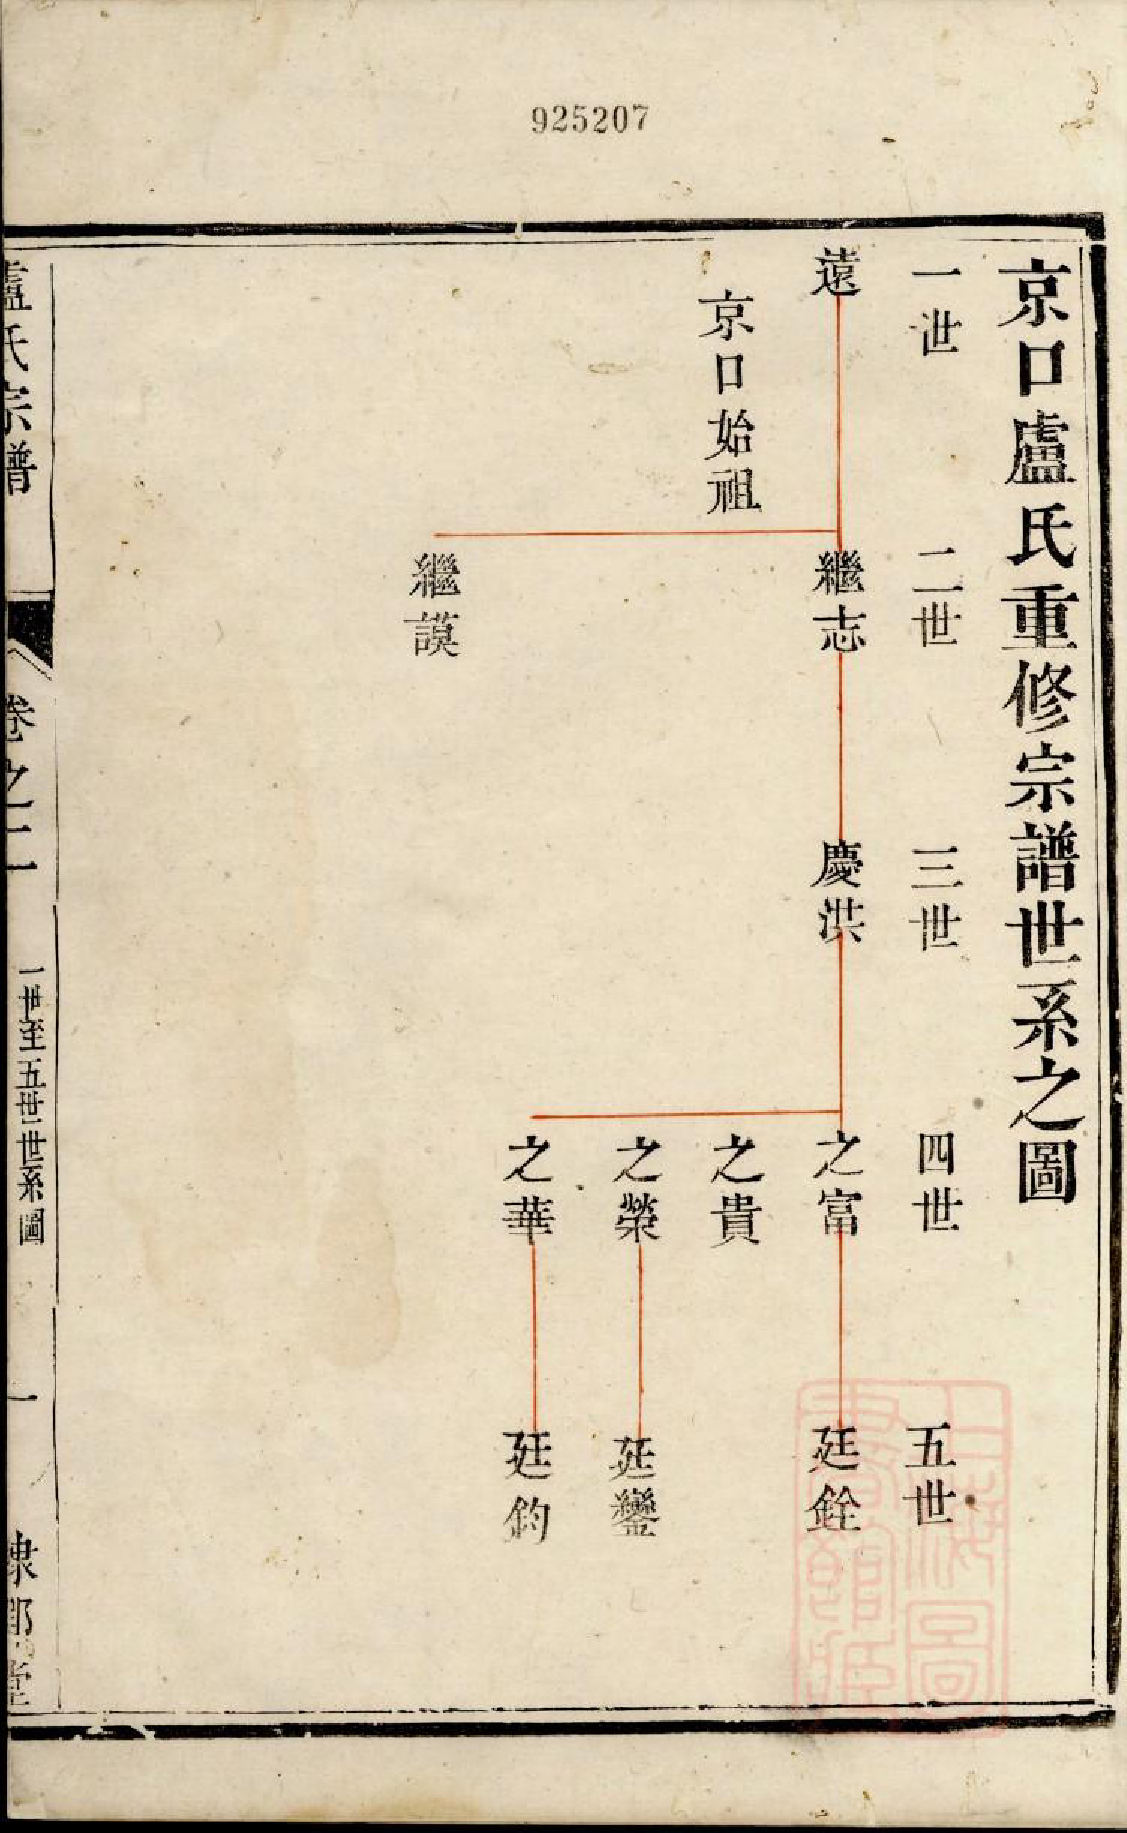 925207
京口盧氏重修宗譜世系之圖
一世
二世
三世
四世
五世
遠
繼志
慶洪
之富
廷銓
京口始祖
之貴
之榮
廷鑾
之華
廷鈞
繼謨
盧氏宗譜
卷之二
一世至五世世系圖
一
上海圖
書館藏